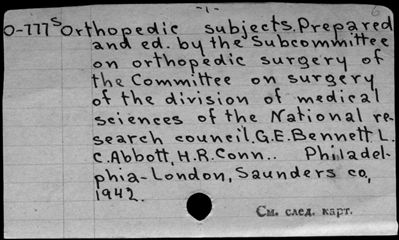 -1-
6
O-777S Orthopedic subjects. Prepared
and ed. by the Subcommittee
on orthopedic surgery of
the Committee on surgery
of the division of medical
sciences of the National re-
search council. G.E. Bennett. L.
C. Abbott, H.R. Conn.. Philadel-
phia-London, Saunders co,
1942.
См. след. карт.